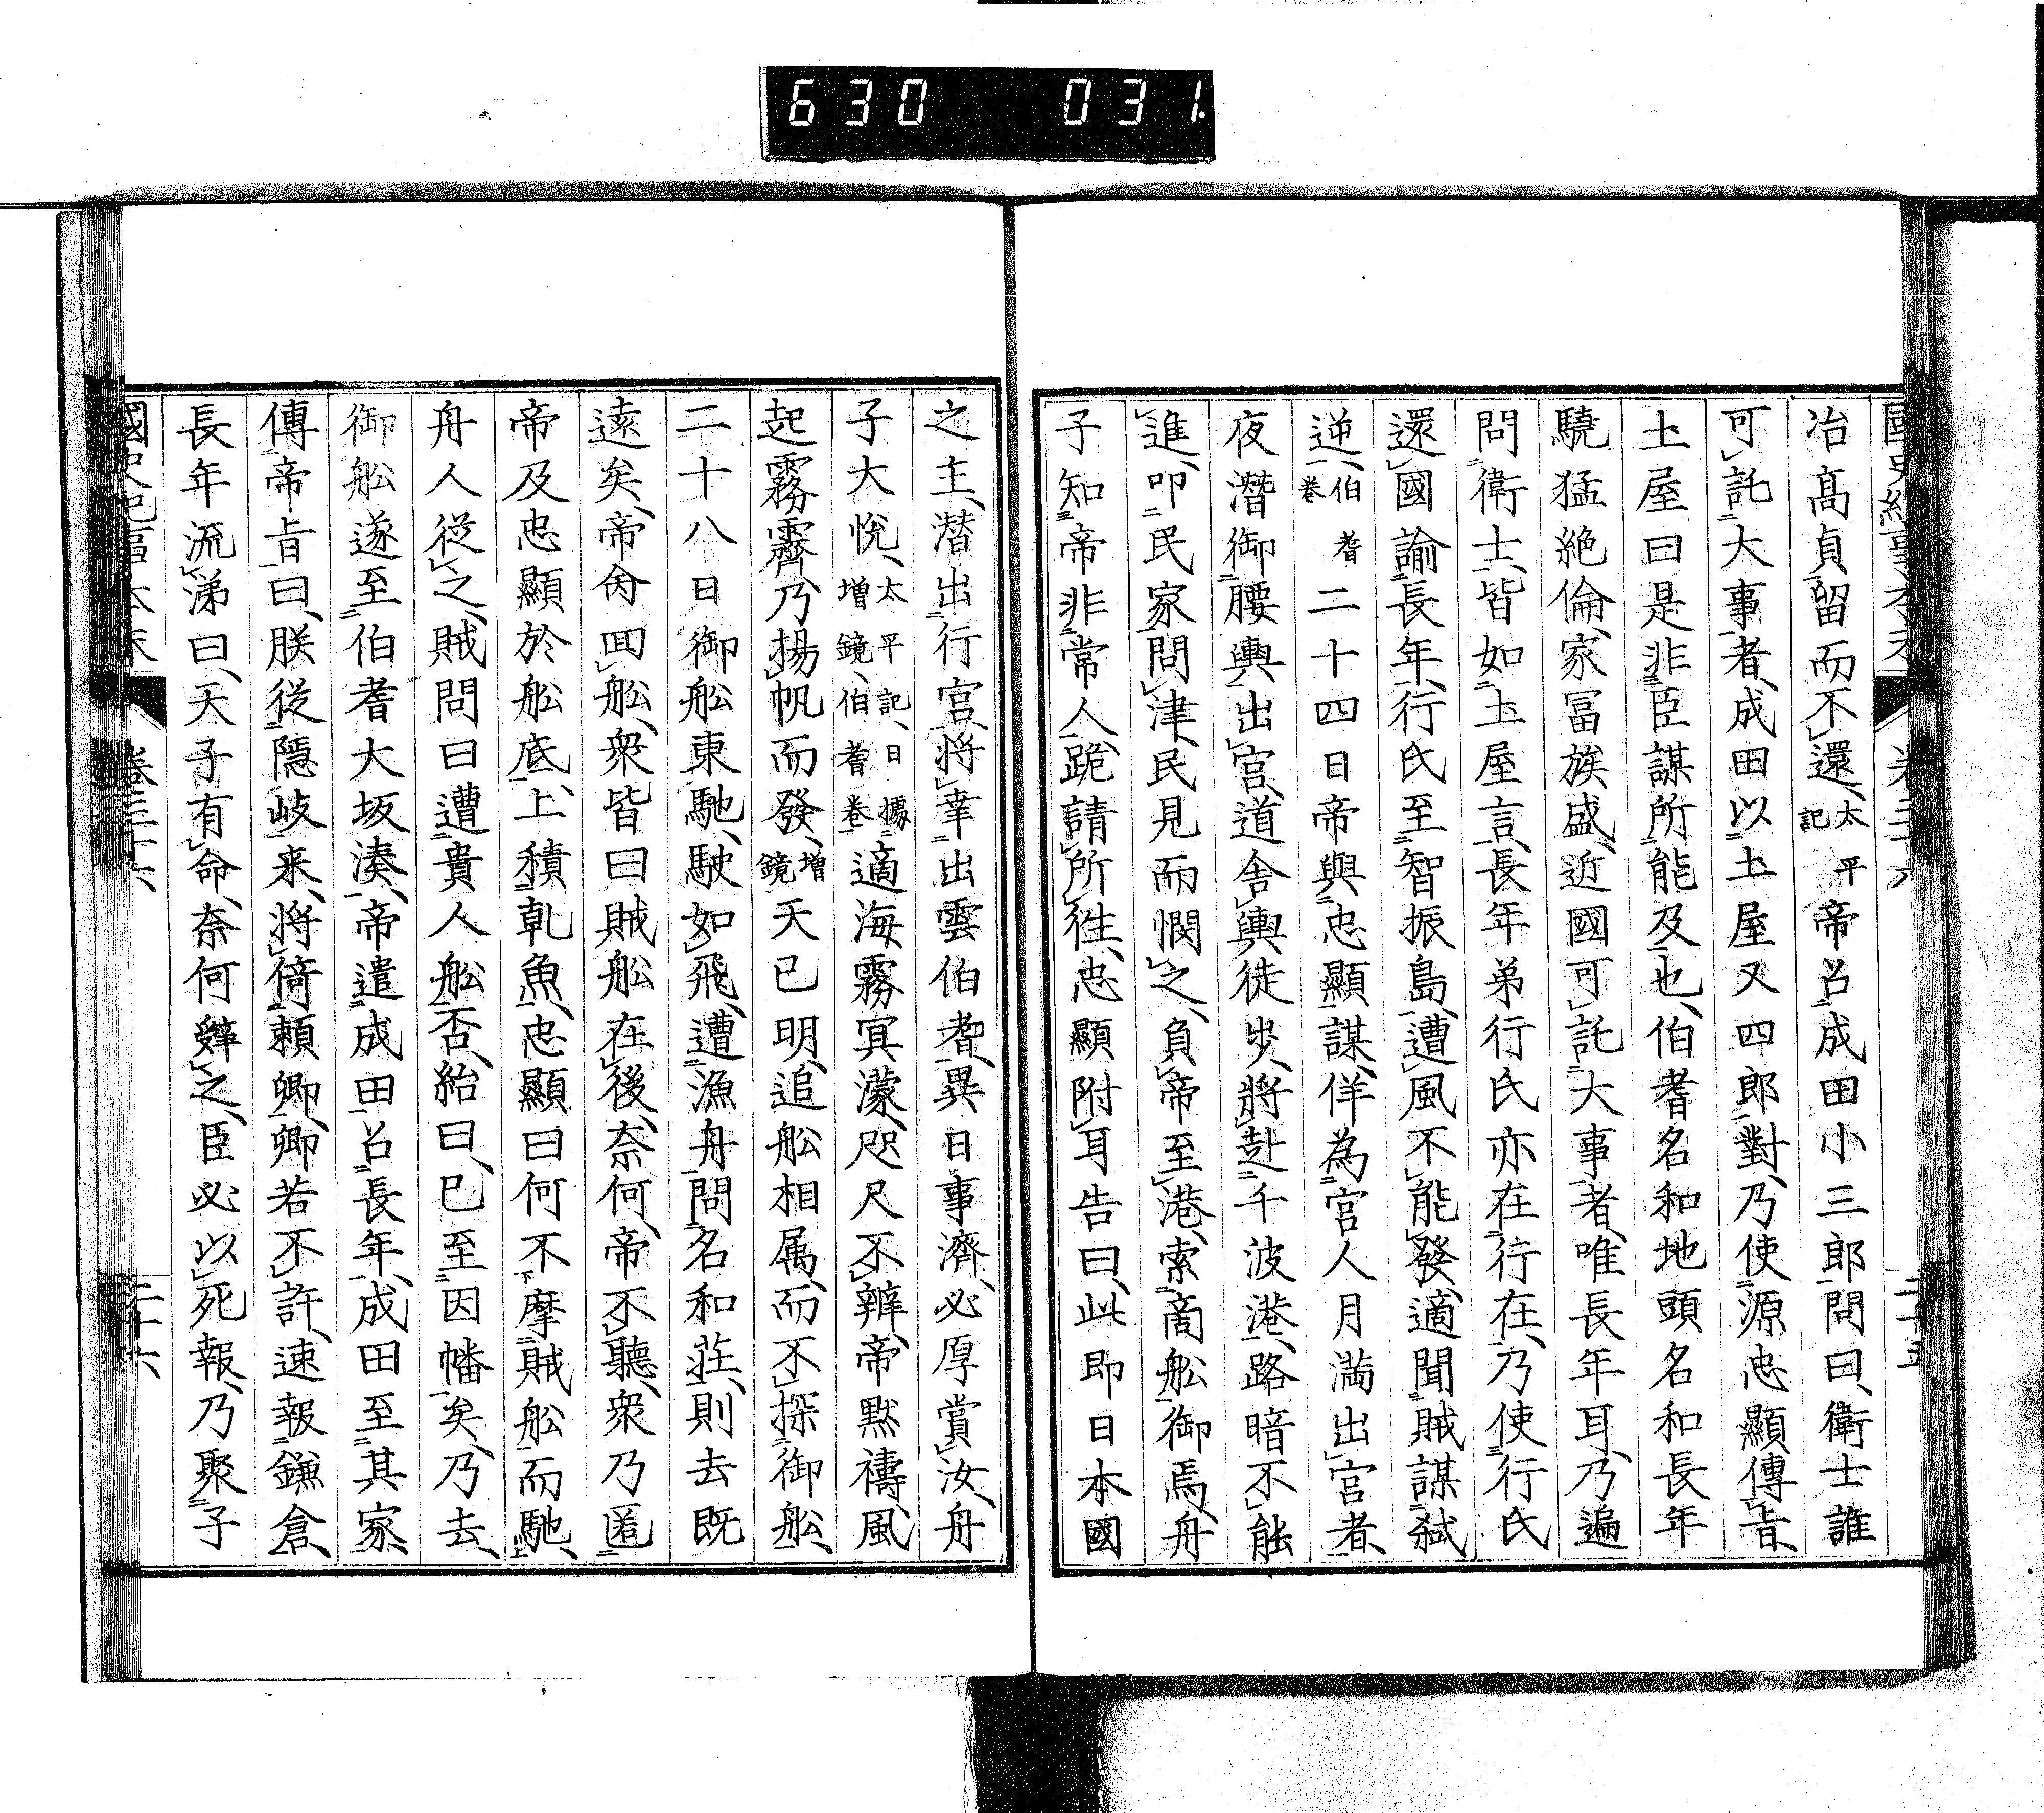 630 031
冶髙貞留而不還、太平記帝召成田小三郎問曰、衛士誰
可託大事者、成田以土屋又四郎對、乃使源忠顯傳旨、
土屋曰是非臣謀所能及也、伯耆名和地頭名和長年
驍猛絶倫、家冨族盛、近國可託大事者、唯長年耳、乃遍
問衛士、皆如土屋言、長年弟行氏亦在行在、乃使行氏
還國諭長年、行氏至智振島、遭風不能發、適聞賊謀弑
逆、伯耆卷二十四日帝與忠顯謀、佯為宮人月満出宮者、
夜潛御腰輿出宮、道舎輿徒歩、將赴千波港、路暗不能
進、叩民家問津、民見而憫之、負帝至港、索商舩御焉、舟
子知帝非常人、跪請所徃、忠顯附耳告曰、此即日本國
之主、潜出行宮、将幸出雲伯耆、異日事濟、必厚賞汝、舟
子大悦、太平記、增鏡、伯耆卷日據適海霧冥濛、咫尺不辨、帝黙禱、風
起霧霽、乃揚帆而發、增鏡天已明、追舩相属、而不探御舩、
二十八日御舩東馳、駛如飛、遭漁舟問名和莊、則去既
遠矣、帝命囬舩、衆皆曰賊舩在後、奈何、帝不聽、衆乃匿
帝及忠顯於舩底、上積乾魚、忠顯曰何不摩賊舩而馳、
舟人從之、賊問曰遭貴人舩否、紿曰、已至因幡矣、乃去、
御舩遂至伯耆大坂湊、帝遣成田召長年、成田至其家、
傳帝旨曰、朕從隱岐来、将倚頼卿、卿若不許、速報鎌倉、
長年流涕曰、天子有命、奈何辭之、臣必以死報、乃聚子
國史紀事本末 卷三十六 二十六